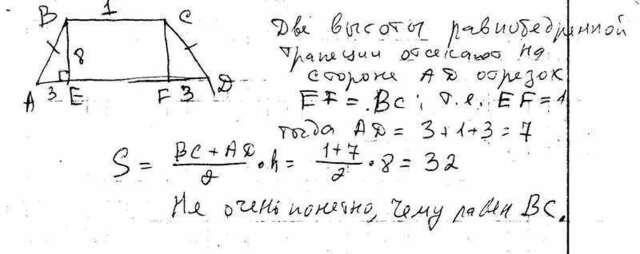 B 1 C
8
A 3 E F 3 D
Две высоты равнобедренной
трапеции отсекают на
стороне AD отрезок
EF = BC; т.е. EF = 1
тогда AD = 3+1+3 = 7
S = (BC + AD)/2 · h = (1+7)/2 · 8 = 32
Не очень понятно, чему равен BC.